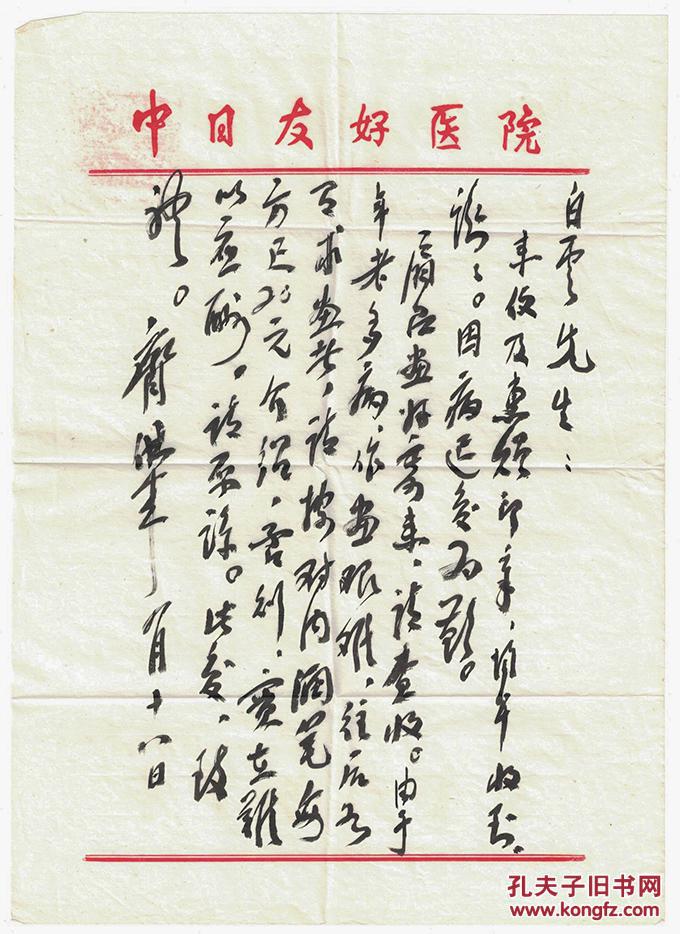 中日友好医院
白雲先生：
来信及惠赠印章，均早收到，
谢々。因病迟复为歉。
扇面画好寄来，请查收。由于
年老多病，作画艰难，往后如
有求画者，请按对内润笔每
方尺20元介绍，否则，實在難
以应酬。请原谅。此复，致
礼。
月十八日
孔夫子旧书网
www.kongfz.com